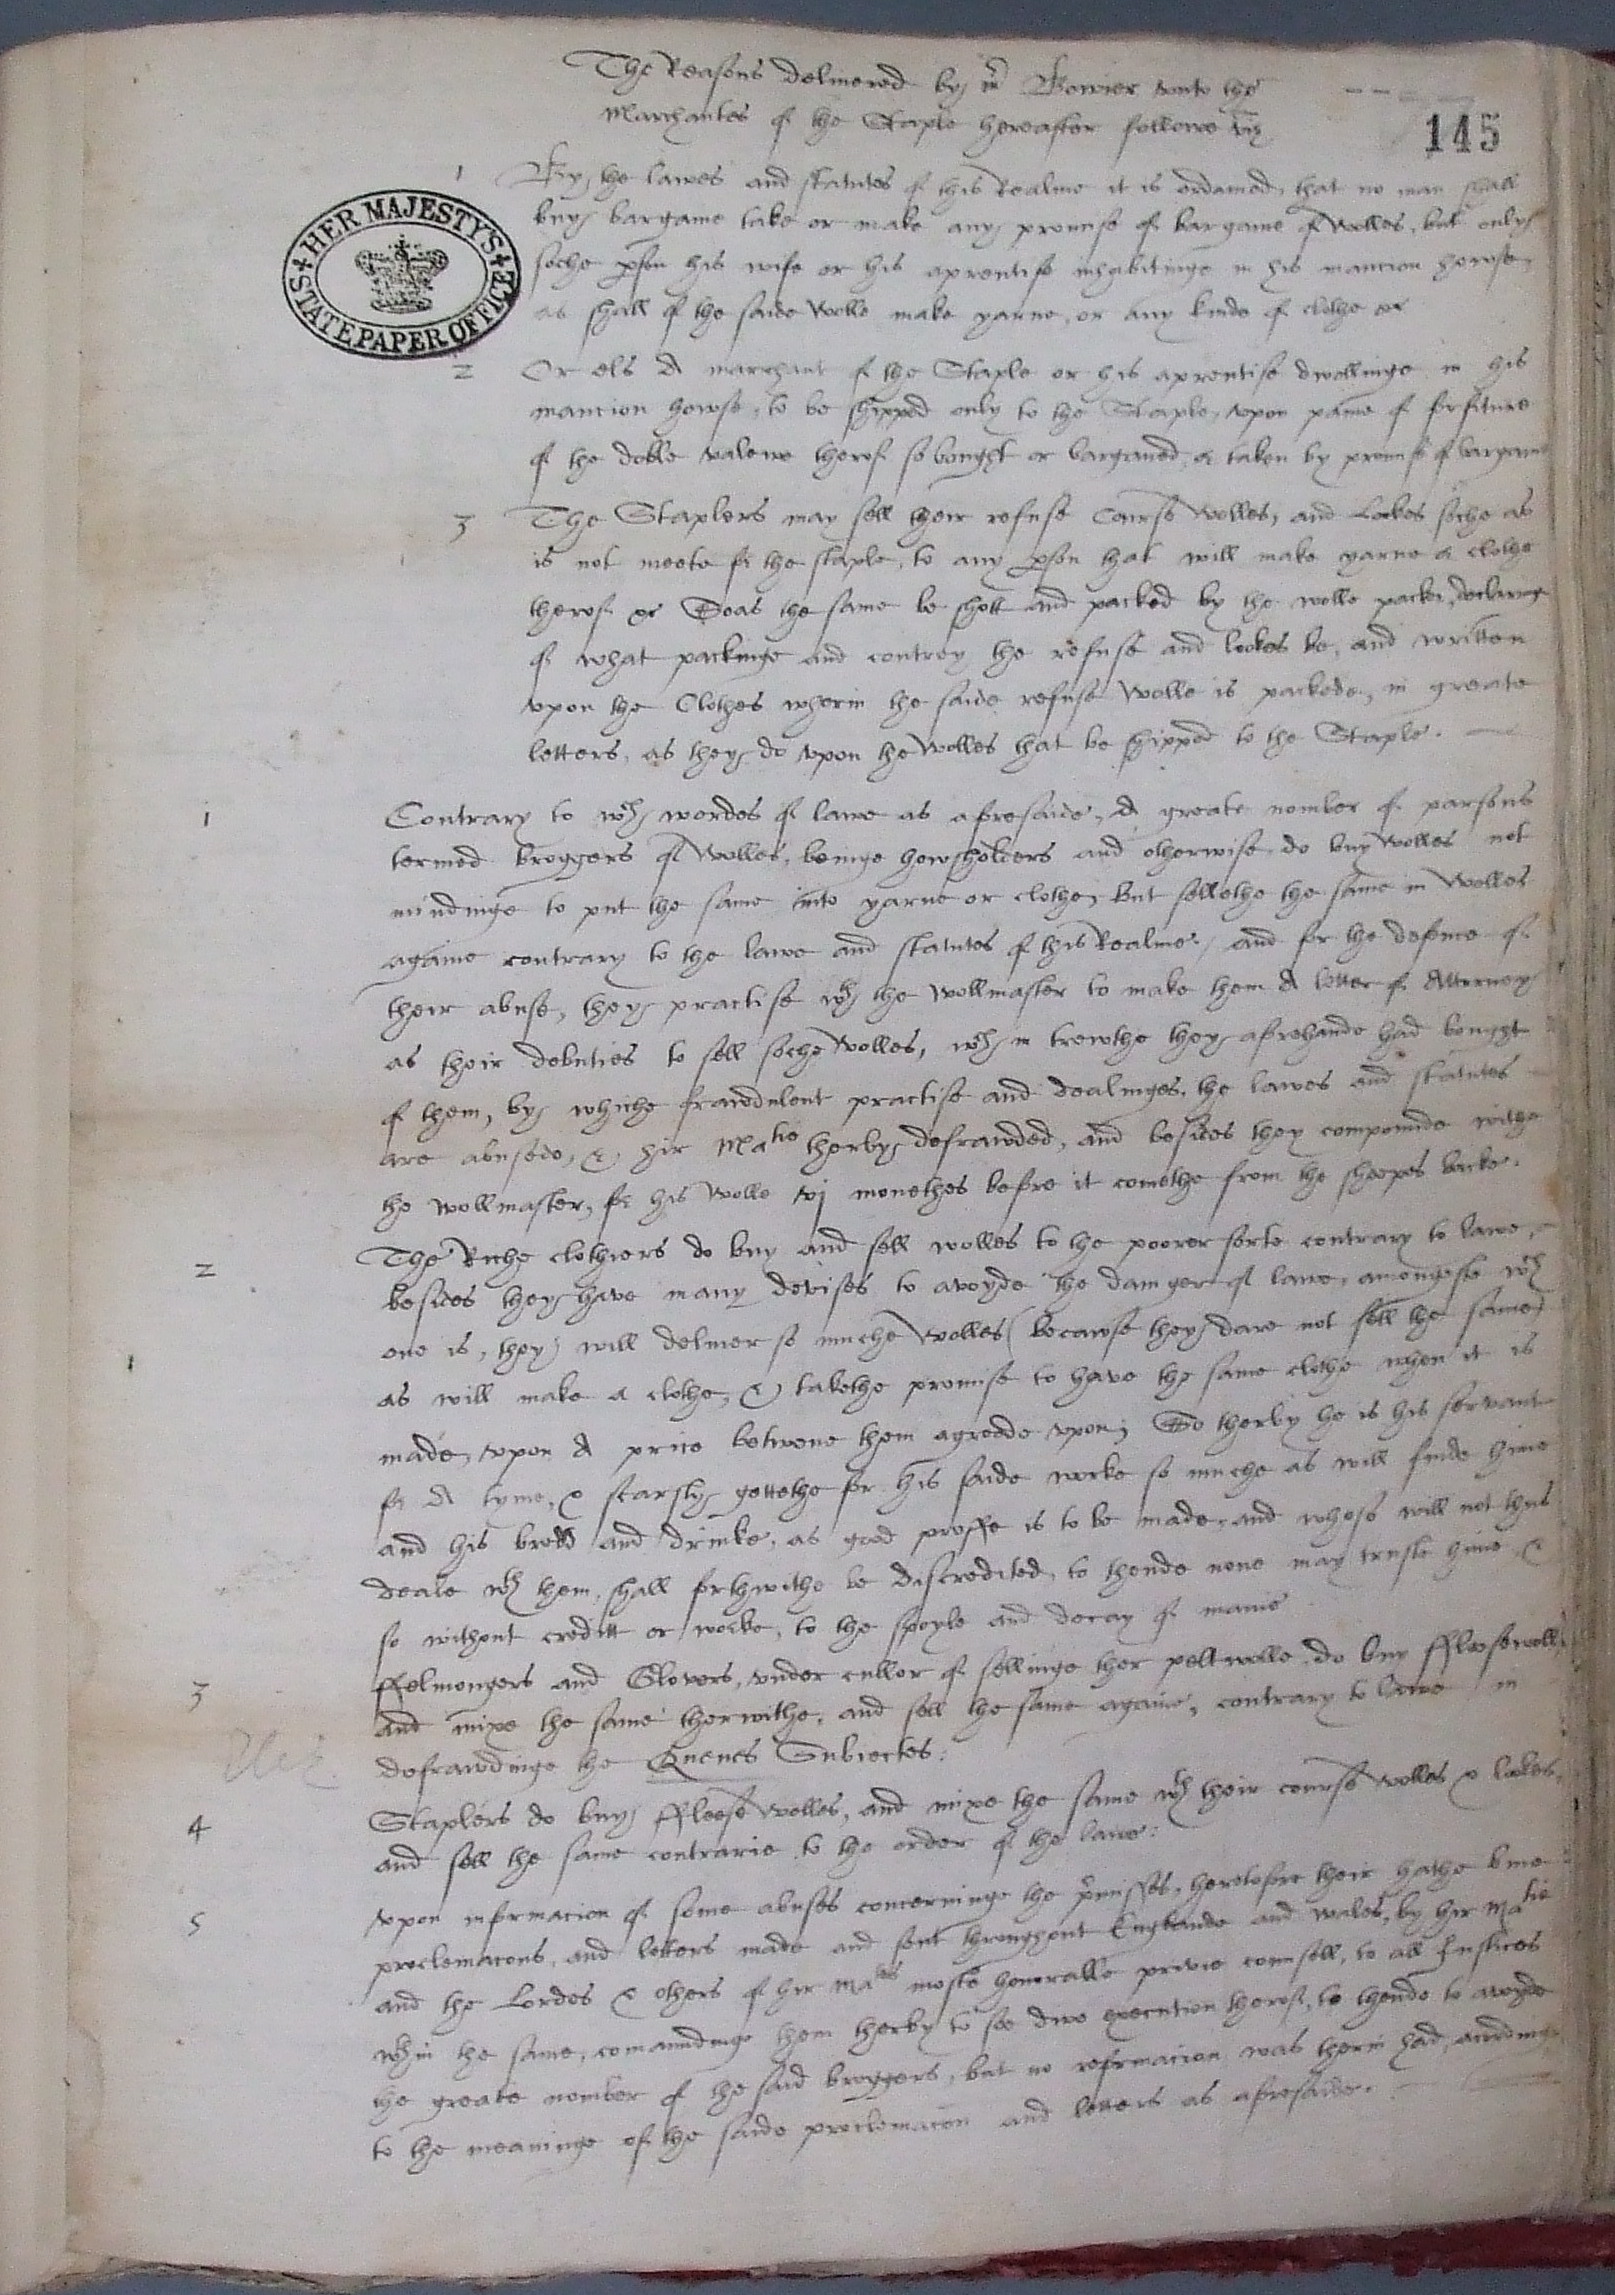 The Reasons delivered by mr Bowier unto the
Marchantes of the Staple hereafter followe viz
145
1 By the lawes and statutes of this Realme it is ordained, that no man shall
buy bargaine take or make any promise of bargaine of wolles, but only
soche pson his wife or his aprentise inhabitinge in his mancion howse,
as shall of the saide wolle make yarne, or any kinde of clothe or
HER MAJESTY'S STATE PAPER OFFICE
2 Or els A marchant of the Staple or his aprentise dwellinge in his
mancion howse, to be shipped only to the Staple, upon paine of forfiture
of the doble valewe therof so bought or bargained, or taken by promise of bargaine
3 The Staplers may sell their refuse Course wolles, and Lockes soche as
is not meete for the staple, to any pson that will make yarne or clothe
therof or Soas the same be shott and packed by the wolle packer, declaring
of what packinge and contrey the refuse and lockes be, and written
upon the Clothes wherin the saide refuse wolle is packede, in greate
letters, as they do upon the wolles that be shipped to the Staple.
1 Contrary to wch wordes of lawe as aforesaide, A greate nomber of parsons
termed broggers of wolles, beinge howsholders and otherwise do buy wolles not
mindinge to put the same into yarne or clothe, but sellethe the same in wolles
againe contrary to the lawe and statutes of this Realme, and for the defence of
their abuse, they practise wth the wollmaster to make them A letter of Atturney
as their debuties to sell soche wolles, wch in trewthe they aforehande had bought
of them, by whiche frawdulent practise and dealinges, the lawes and statutes
are abusede, & hir Matie therby defrawded, and besides they compounde withe
the wollmaster, for his wolle vj monethes before it comethe from the sheepes backe.
2 The Riche clothiers do buy and sell wolles to the poorer sorte contrary to lawe,
besides they have many devises to avoyde the daunger of lawe, amongeste wch
one is, they will deliver so muche wolles (becawse they dare not sell the same)
as will make a clothe, & takethe promise to have the same clothe when it is
made, upon A price betwene them agreede upon; So therby he is his servant
for A tyme, & scarsly gettethe for his saide worke so muche as will finde hime
and his bredd and drinke, as good prooffe is to be made, and whoso will not thus
deale wth them, shall forthwithe be discredited, to thende none may truste hime, &
so without creditt or worke, to the spoyle and decay of manie
3 ffelmongers and Glovers, under cullor of sellinge ther pellwolle, do buy ffleesewoll,
and mixe the same therwithe, and sell the same againe, contrary to lawe in
defrawdinge the Quenes Subiectes:
4 Staplers do buy ffleese wolles, and mixe the same wth their course wolles & lockes,
and sell the same contrarie to the order of the lawe:
5 upon informacion of some abuses concerninge the pmisses, heretofore their hathe bine
proclemacons, and letters made and sent throughout Englande and wales, by hir Matie
and the Lordes & others of hir Mates moste honoralle privie counsell, to all Justices
wthin the same, comaundinge them therby to see due execution therof, to thende to avoyde
the greate nomber of the said broggers, but no reformacion was therin had, accordinge
to the meaninge of the saide proclemacon and letters as aforesaide.